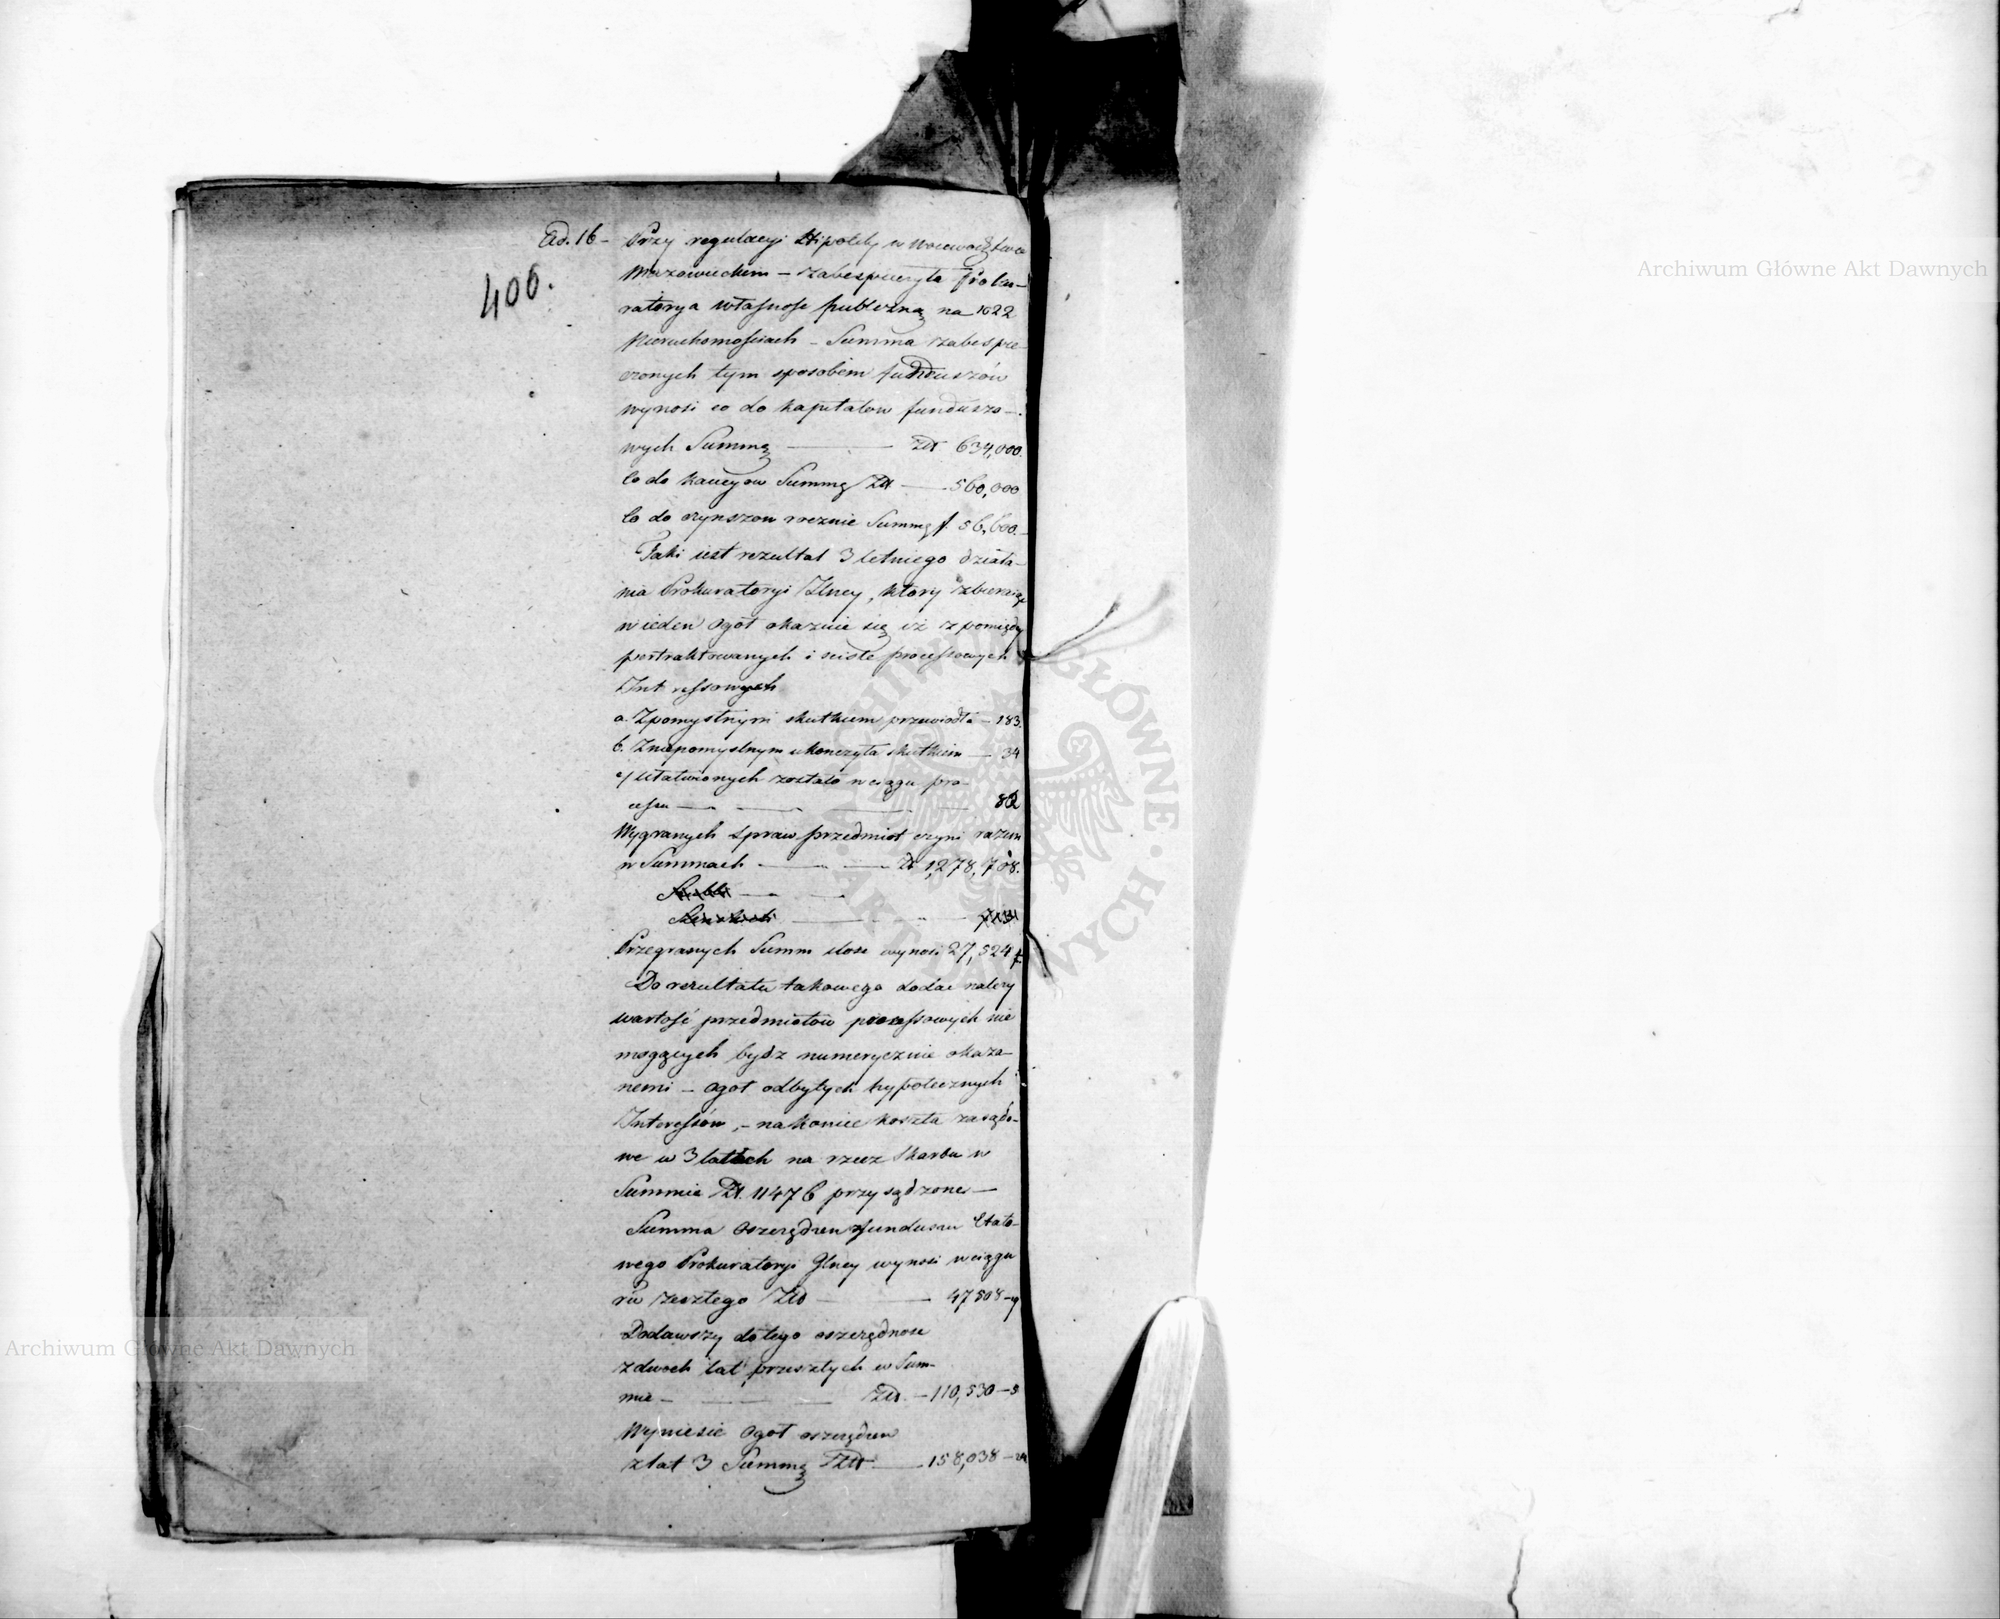 Ad. 16 – Przy regulacyi Hipoteky w Woiewodztwie
400.
Mazowieckim – zabespieczyła Proku-
ratorya własnosc publiczną na 1022
Nieruchomosciach – Summa zabespie
czonych tym sposobem funduszów
wynosi co do kapitalow funduszo-
wych Summę — Zł 634,000.
Co do kaucyow Summę Zł — 560,000
Co do czynszow rocznie Summę f. 56,600.
Taki iest rezultat 3 letniego działa-
nia Prokuratoryi Jlney, ktory zbieraiąc
w ieden ogoł okazuie się iż z pomiędzy
pertraktowanych i scisle processowych
Interessowych
a. Z pomyslnym skutkiem przewiodła – 183.
b. Z niepomyslnym ukonczyła skutkiem — 34
c/ ułatwionych zostało w ciągu pro-
cessu — 82
Wygranych spraw przedmiot czyni razem
w Summach — Zł 1,278,708.
Przegranych Summ ilosc wynosi 27,524 f.
Do rezultatu takowego dodac nalezy
wartosć przedmiotow processowych nie
mogących bydz numerycznie okaza-
nemi – ogoł odbytych hypotecznych
Interessów, – nakoniec koszta zasądo-
we w 3 latach na rzecz Skarbu w
Summie Zł. 11476 przysądzone –
Summa oszczędzen z funduszu Etato-
wego Prokuratoryi Jlney wynosi w ciągu
ru zeszłego Zło — 47508 – 9
Dodawszy do tego oszczędnosc
z dwoch lat przeszłych w Sum-
mie — Zło. – 110,530 – 5
Wyniesie ogoł oszczędzen
z lat 3 Summę Zło — 158,038 –
Archiwum Główne Akt Dawnych
Archiwum Główne Akt Dawnych
ARCHIWUM GŁÓWNE AKT DAWNYCH